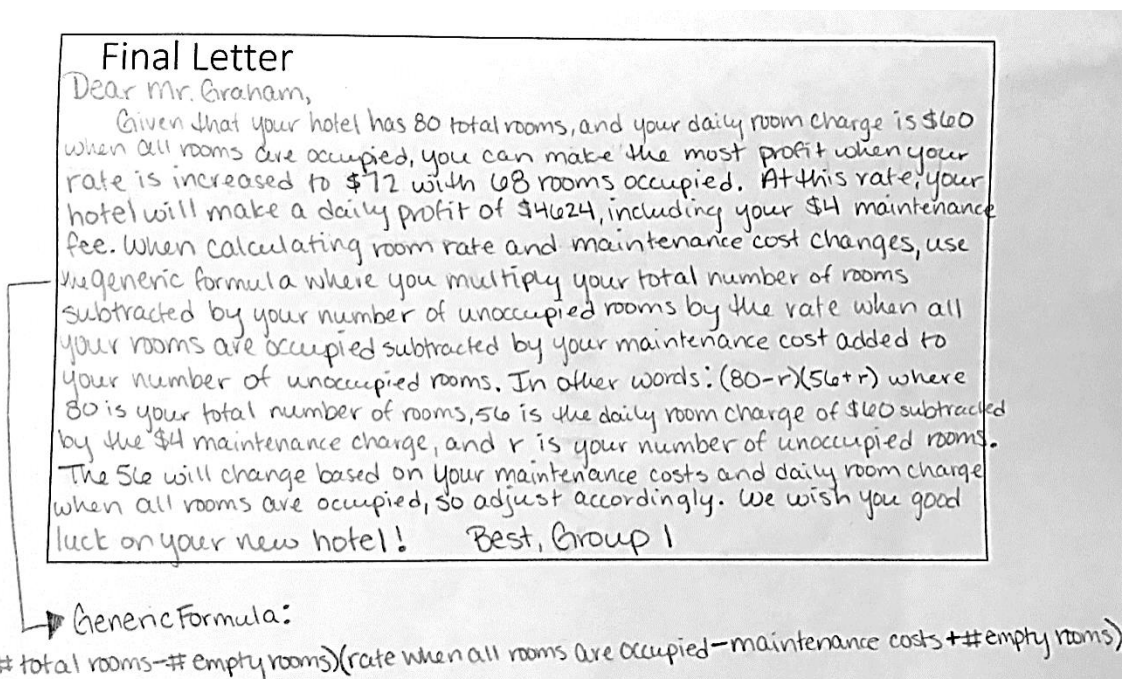 Final Letter
Dear Mr. Graham,
Given that your hotel has 80 total rooms, and your daily room charge is $60
when all rooms are occupied, you can make the most profit when your
rate is increased to $72 with 68 rooms occupied. At this rate, your
hotel will make a daily profit of $4624, including your $4 maintenance
fee. When calculating room rate and maintenance cost changes, use
the generic formula where you multiply your total number of rooms
subtracted by your number of unoccupied rooms by the rate when all
your rooms are occupied subtracted by your maintenance cost added to
your number of unoccupied rooms. In other words: (80-r)(56+r) where
80 is your total number of rooms, 56 is the daily room charge of $60 subtracted
by the $4 maintenance charge, and r is your number of unoccupied rooms.
The 56 will change based on your maintenance costs and daily room charge
when all rooms are occupied, so adjust accordingly. We wish you good
luck on your new hotel! Best, Group 1
Generic Formula:
# total rooms-# empty rooms)(rate when all rooms are occupied-maintenance costs+#empty rooms)